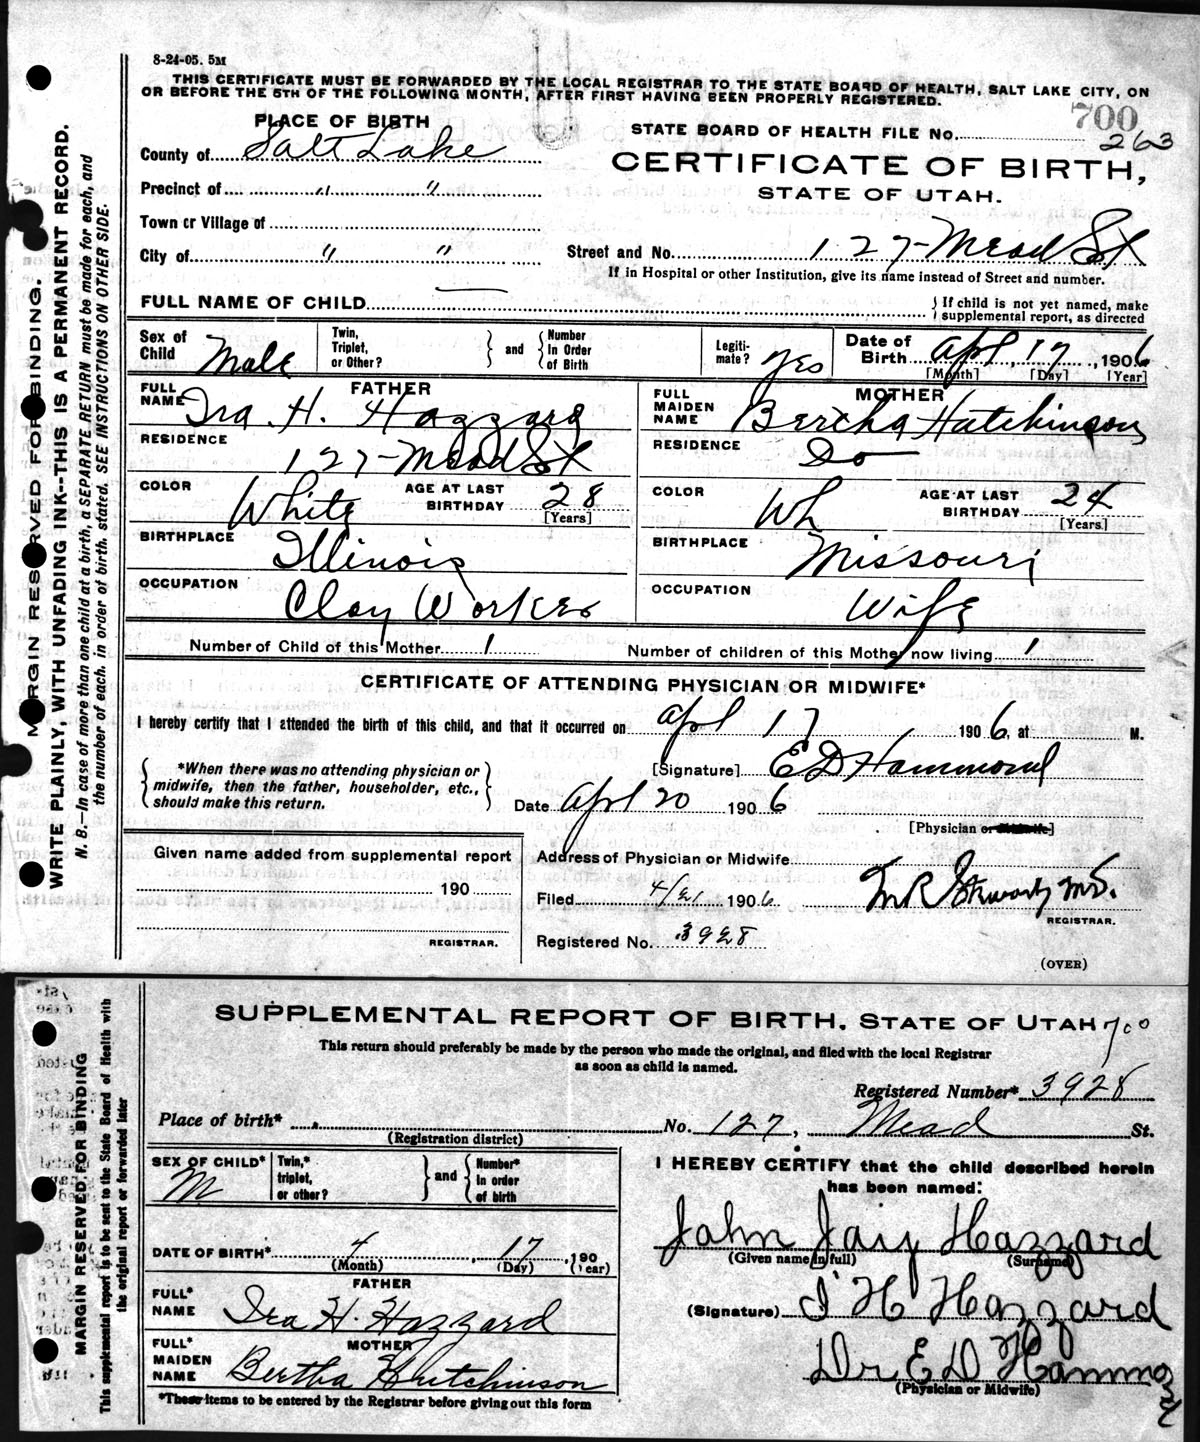 8-24-05. 5M
THIS CERTIFICATE MUST BE FORWARDED BY THE LOCAL REGISTRAR TO THE STATE BOARD OF HEALTH, SALT LAKE CITY, ON
OR BEFORE THE 5TH OF THE FOLLOWING MONTH, AFTER FIRST HAVING BEEN PROPERLY REGISTERED.
MARGIN RESERVED FOR BINDING.
WRITE PLAINLY, WITH UNFADING INK--THIS IS A PERMANENT RECORD.
N. B.—In case of more than one child at a birth, a SEPARATE RETURN must be made for each, and
the number of each, in order of birth, stated. SEE INSTRUCTIONS ON OTHER SIDE.
PLACE OF BIRTH
County of Salt Lake
Precinct of " "
Town or Village of
City of " "
700
STATE BOARD OF HEALTH FILE No. 263
CERTIFICATE OF BIRTH,
STATE OF UTAH.
Street and No. 127 Mead St
If in Hospital or other Institution, give its name instead of Street and number.
FULL NAME OF CHILD — { If child is not yet named, make
supplemental report, as directed
Sex of Child Male
Twin, Triplet, or Other? } and { Number In Order of Birth
Legiti-mate? Yes
Date of Birth Apl, 17, 1906
[Month] [Day] [Year]
FATHER
FULL NAME Ira. H. Hazzard
RESIDENCE 127 Mead St
COLOR White AGE AT LAST BIRTHDAY 28 [Years]
BIRTHPLACE Illinois
OCCUPATION Clay Worker
MOTHER
FULL MAIDEN NAME Bertha Hutchinson
RESIDENCE Do
COLOR Wh AGE AT LAST BIRTHDAY 24 [Years]
BIRTHPLACE Missouri
OCCUPATION Wife
Number of Child of this Mother 1 Number of children of this Mother now living 1
CERTIFICATE OF ATTENDING PHYSICIAN OR MIDWIFE*
I hereby certify that I attended the birth of this child, and that it occurred on Apl 17 1906, at M.
{ *When there was no attending physician or
midwife, then the father, householder, etc.,
should make this return. }
[Signature] E D Hammond
Date Apl 20 1906
[Physician or Midwife]
Given name added from supplemental report
190
REGISTRAR.
Address of Physician or Midwife
Filed 4/21 1906 M.D.
REGISTRAR.
Registered No. 3928
(OVER)
MARGIN RESERVED FOR BINDING
This supplemental report is to be sent to the State Board of Health with
the original report or forwarded later
SUPPLEMENTAL REPORT OF BIRTH. STATE OF UTAH 700
This return should preferably be made by the person who made the original, and filed with the local Registrar
as soon as child is named.
Registered Number* 3928
Place of birth* No. 127, Mead St.
(Registration district)
SEX OF CHILD* M
Twin,* triplet, or other? } and { Number* in order of birth
DATE OF BIRTH* 4, 17, 190
(Month) (Day) (Year)
FATHER
FULL* NAME Ira H. Hazzard
MOTHER
FULL* MAIDEN NAME Bertha Hutchinson
*These items to be entered by the Registrar before giving out this form
I HEREBY CERTIFY that the child described herein
has been named:
John Jay Hazzard
(Given name in full) (Surname)
(Signature) I H Hazzard
Dr E D Hammond
(Physician or Midwife)